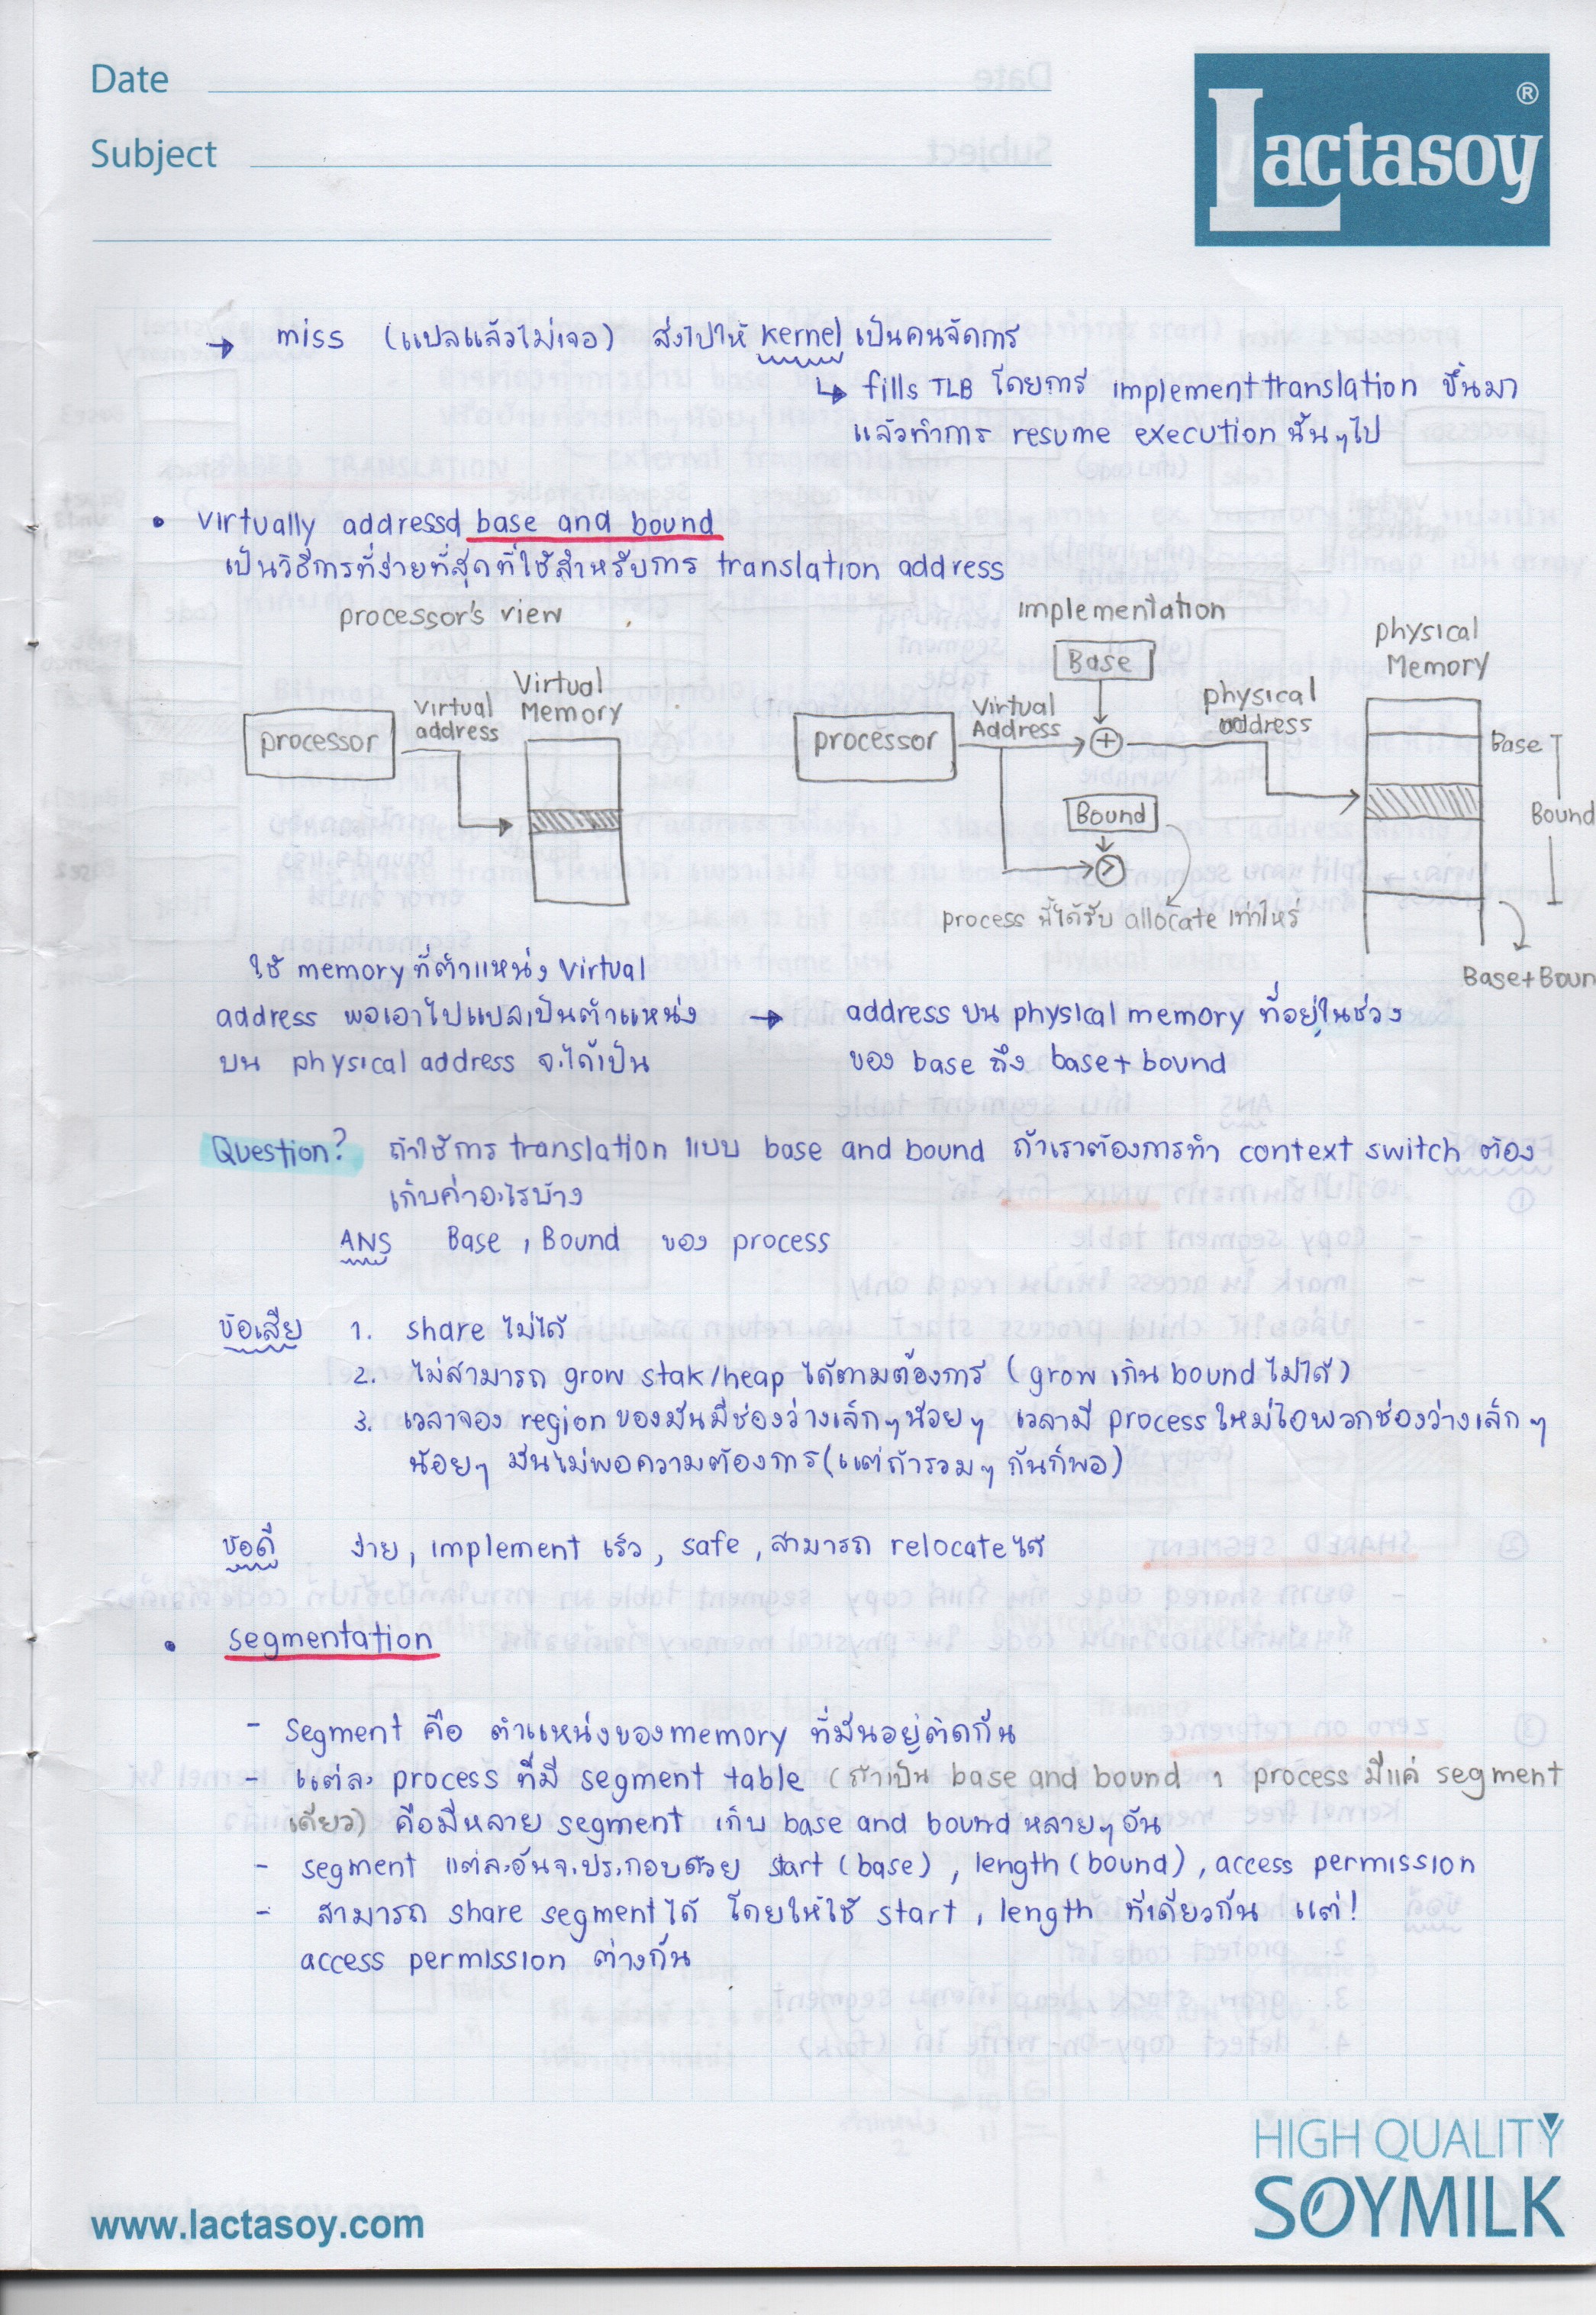 Date
Subject
Lactasoy ®
→ miss (แปลแล้วไม่เจอ) ส่งไปให้ kernel เป็นคนจัดการ
↳ fills TLB โดยการ implement translation ขึ้นมา
แล้วทำการ resume execution นั้นๆไป
• virtually addressd base and bound
เป็นวิธีการที่ง่ายที่สุดที่ใช้สำหรับการ translation address
processor's view
processor
virtual address
Virtual Memory
Implementation
Base
processor
Virtual Address
+
physical address
Bound
>
process นี้ได้รับ allocate เท่าไหร่
physical Memory
Base
Bound
Base+Boun
ใช้ memory ที่ตำแหน่ง virtual
address พอเอาไปแปลเป็นตำแหน่ง → address บน physical memory ที่อยู่ในช่วง
บน physical address จะได้เป็น ของ base ถึง base+bound
Question? ถ้าใช้การ translation แบบ base and bound ถ้าเราต้องการทำ context switch ต้อง
เก็บค่าอะไรบ้าง
ANS Base , Bound ของ process
ข้อเสีย 1. share ไม่ได้
2. ไม่สามารถ grow stak/heap ได้ตามต้องการ (grow เกิน bound ไม่ได้)
3. เวลาจอง region ของมันมีช่องว่างเล็กๆน้อยๆ เวลามี process ใหม่ไอพวกช่องว่างเล็กๆ
น้อยๆ มันไม่พอความต้องการ(แต่ถ้ารวมๆ กันก็พอ)
ข้อดี ง่าย, implement เร็ว, safe, สามารถ relocate ได้
• segmentation
- segment คือ ตำแหน่งของ memory ที่มันอยู่ติดกัน
- แต่ละ process ที่มี segment table (ถ้าเป็น base and bound 1 process มีแค่ segment
เดียว) คือมีหลาย segment เก็บ base and bound หลายๆอัน
- segment แต่ละอันจะประกอบด้วย start (base), length (bound), access permission
- สามารถ share segment ได้ โดยให้ใช้ start, length ที่เดียวกัน แต่!
access permission ต่างกัน
HIGH QUALITY
SOYMILK
www.lactasoy.com